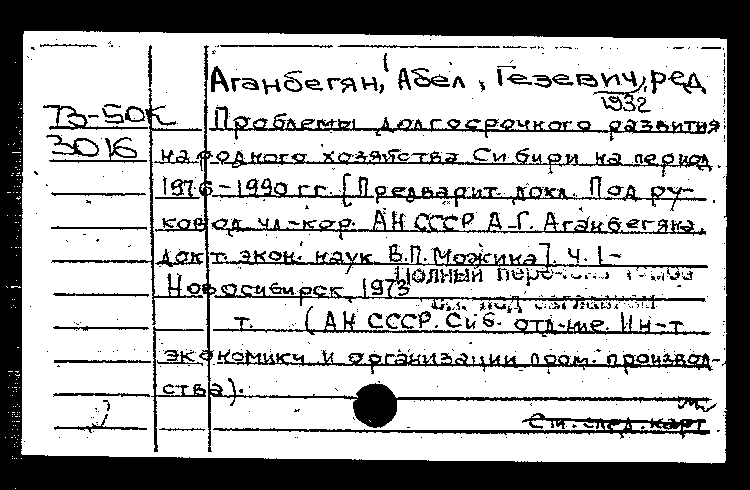 Аганбегян, Абел, Гезевич, ред
1932
73-50К
Проблемы долгосрочного развития
3016
народного хозяйства Сибири на период
1976-1990 гг. [Предварит. докл. Под ру-
ковод. чл-кор. АН СССР А.Г. Аганбегяна,
докт. экон. наук В.П. Можина]. Ч. 1-
Полный перечень
Новосибирск, 1973
под заглавием
т. (АН СССР. Сиб. отд-ние. Ин-т
экономики и организации пром. производ-
ства).
См. след. карт